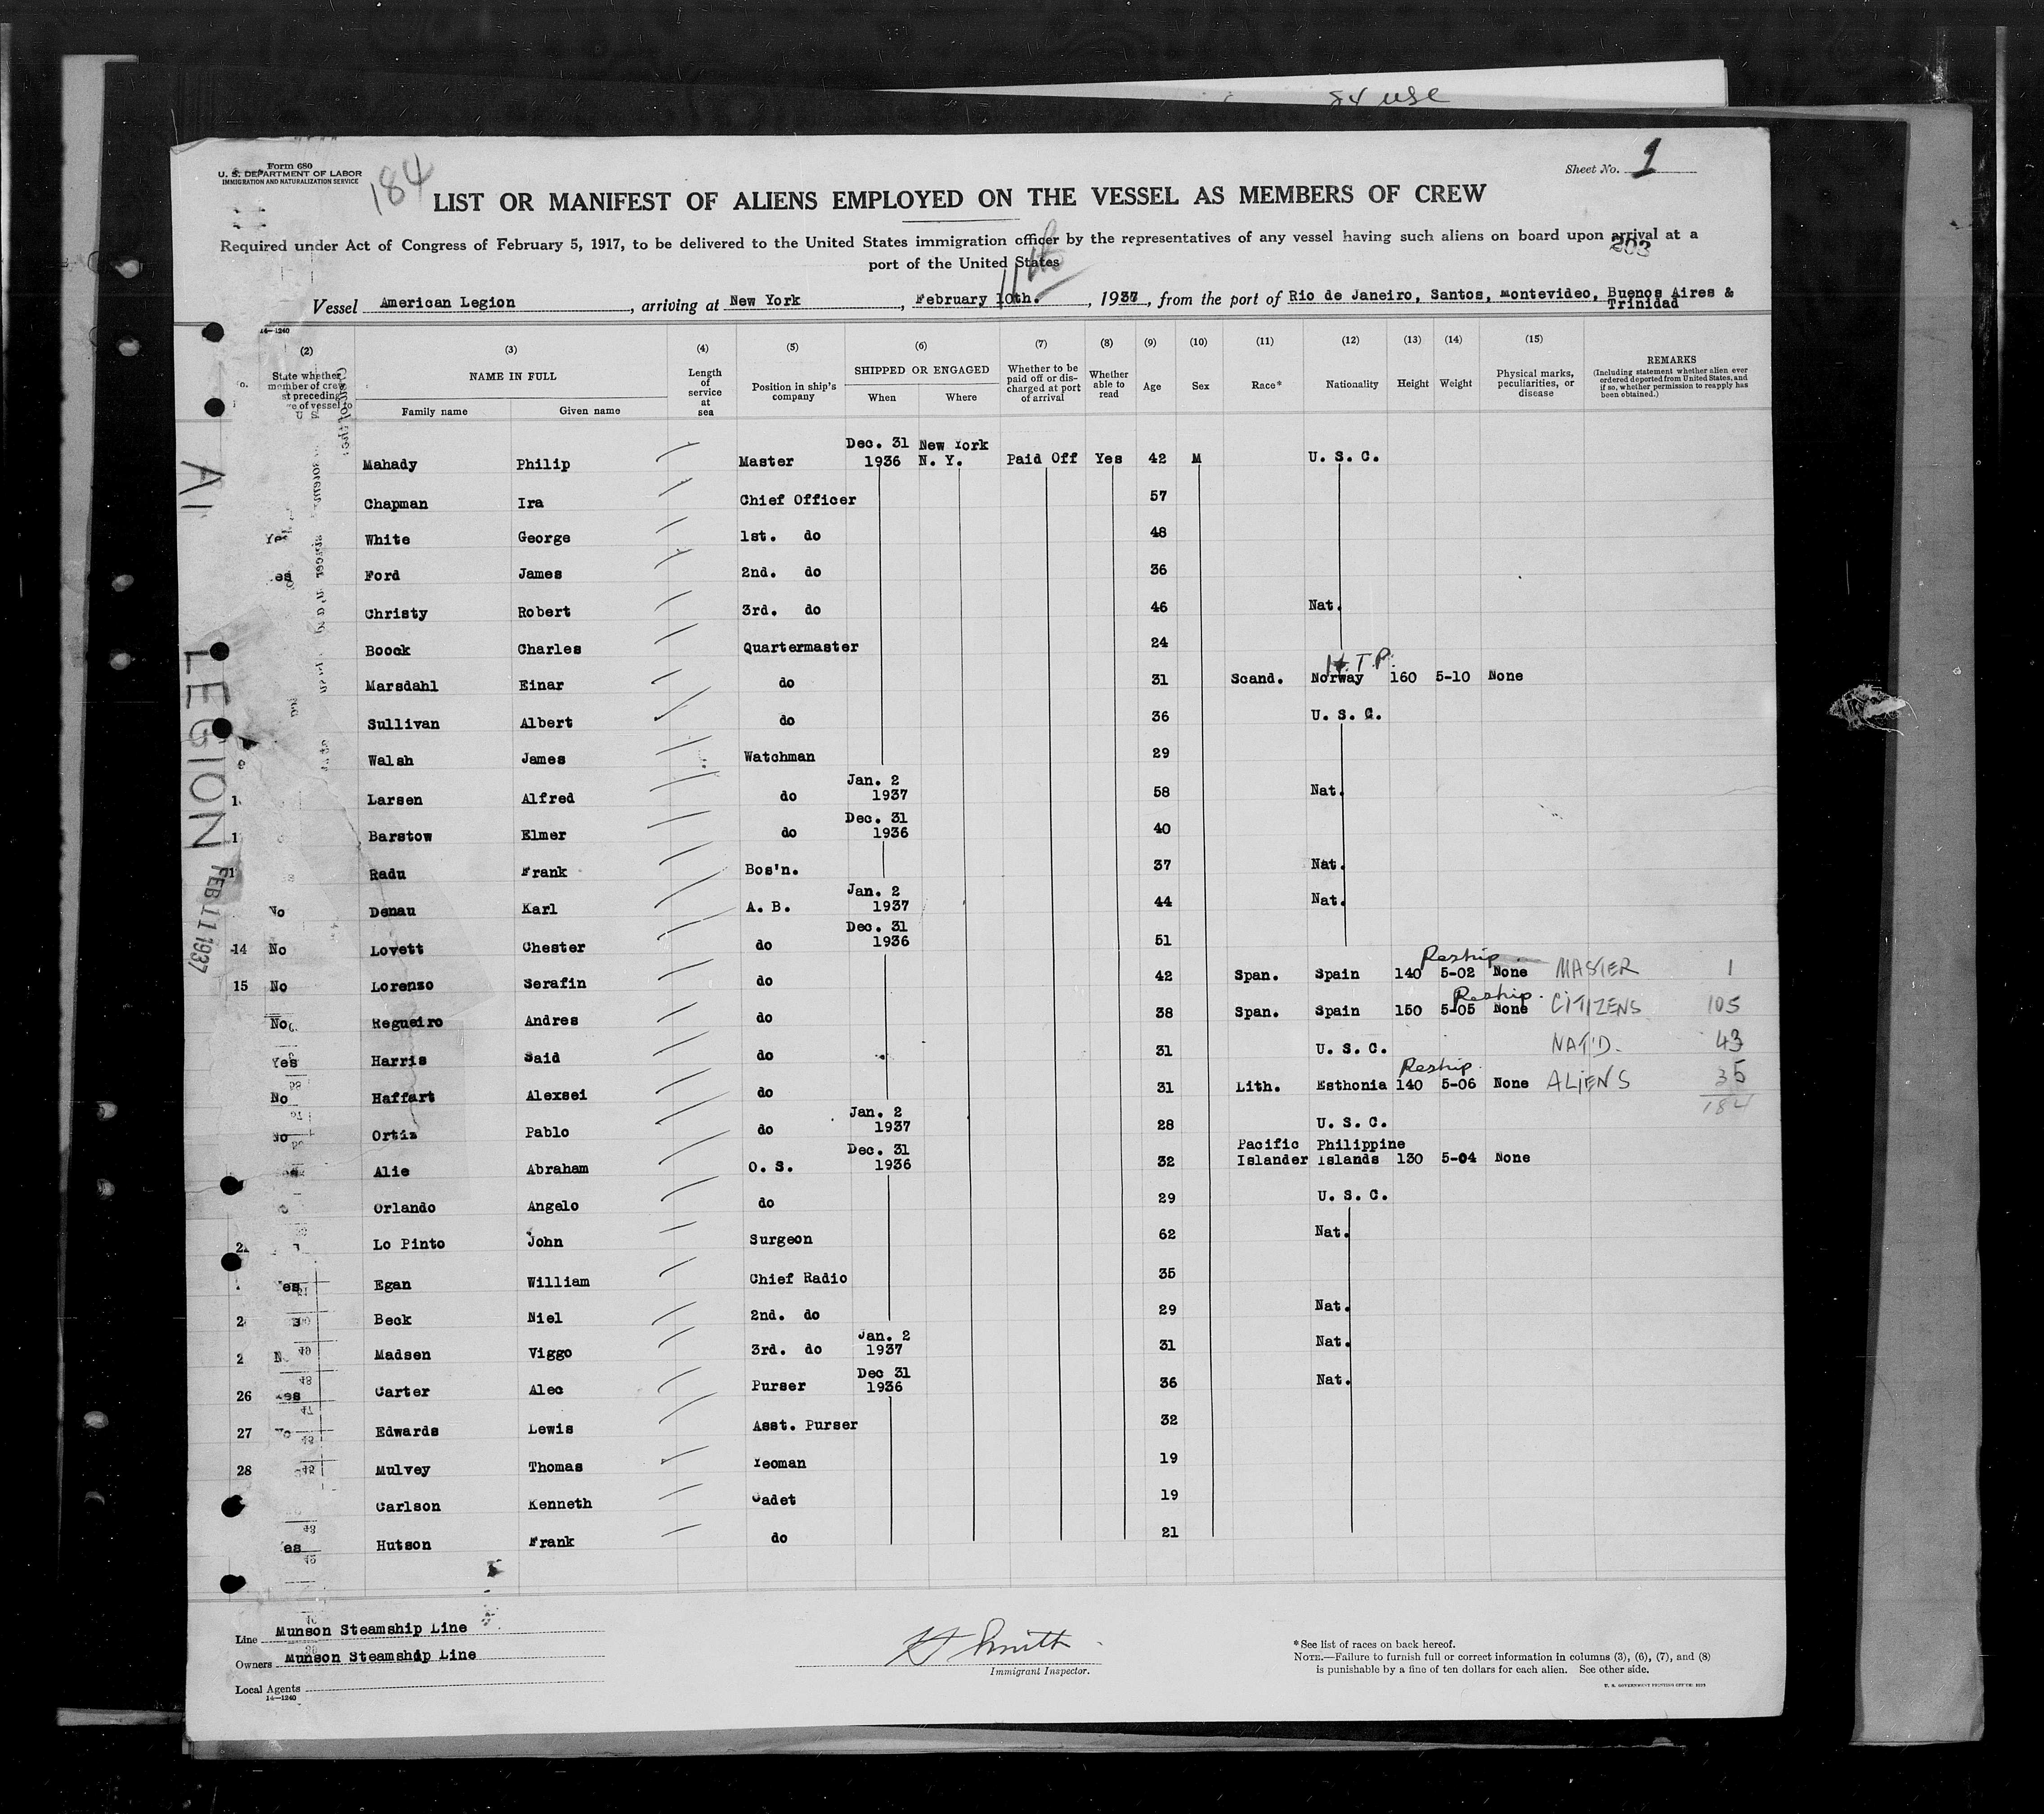 84 use
Form 680
U. S. DEPARTMENT OF LABOR
IMMIGRATION AND NATURALIZATION SERVICE
184
Sheet No. 1
LIST OR MANIFEST OF ALIENS EMPLOYED ON THE VESSEL AS MEMBERS OF CREW
Required under Act of Congress of February 5, 1917, to be delivered to the United States immigration officer by the representatives of any vessel having such aliens on board upon arrival at a
port of the United States
203
11th
Vessel American Legion, arriving at New York, February 10th., 1937, from the port of Rio de Janeiro, Santos, Montevideo, Buenos Aires &
Trinidad
14-1240
(2) (3) (4) (5) (6) (7) (8) (9) (10) (11) (12) (13) (14) (15)
State whether member of crew preceding of vessel to U. S.
NAME IN FULL
Family name Given name
Length of service at sea
Position in ship's company
SHIPPED OR ENGAGED
When Where
Whether to be paid off or discharged at port of arrival
Whether able to read
Age Sex Race* Nationality Height Weight
Physical marks, peculiarities, or disease
REMARKS
(Including statement whether alien ever ordered deported from United States, and if so, whether permission to reapply has been obtained.)
Mahady Philip Master Dec. 31 1936 New York N. Y. Paid Off Yes 42 M U. S. C.
Chapman Ira Chief Officer 57
Yes White George 1st. do 48
es Ford James 2nd. do 36
Christy Robert 3rd. do 46 Nat.
Boock Charles Quartermaster 24
H.T.P.
Marsdahl Einar do 31 Scand. Norway 160 5-10 None
Sullivan Albert do 36 U. S. C.
Walsh James Watchman 29
Larsen Alfred do Jan. 2 1937 58 Nat.
Barstow Elmer do Dec. 31 1936 40
Radu Frank Bos'n. 37 Nat.
No Denau Karl A. B. Jan. 2 1937 44 Nat.
14 No Lovett Chester do Dec. 31 1936 51
Reship
15 No Lorenzo Serafin do 42 Span. Spain 140 5-02 None MASTER 1
Reship.
No Regueiro Andres do 38 Span. Spain 150 5-05 None CITIZENS 105
Yes Harris Said do 31 U. S. C. NAT'D. 43
Reship
No Haffart Alexsei do 31 Lith. Esthonia 140 5-06 None ALIENS 35
184
No Ortiz Pablo do Jan. 2 1937 28 U. S. C.
Alie Abraham O. S. Dec. 31 1936 32 Pacific Islander Philippine Islands 130 5-04 None
Orlando Angelo do 29 U. S. C.
Lo Pinto John Surgeon 62 Nat.
es Egan William Chief Radio 35
Beck Niel 2nd. do 29 Nat.
Madsen Viggo 3rd. do Jan. 2 1937 31 Nat.
26 es Carter Alec Purser Dec 31 1936 36 Nat.
27 Edwards Lewis Asst. Purser 32
28 Mulvey Thomas Yeoman 19
Carlson Kenneth Cadet 19
es Hutson Frank do 21
LEGION
FEB 11 1937
Line Munson Steamship Line
Owners Munson Steamship Line
Local Agents
14-1240
H Smith
Immigrant Inspector.
*See list of races on back hereof.
NOTE.—Failure to furnish full or correct information in columns (3), (6), (7), and (8)
is punishable by a fine of ten dollars for each alien. See other side.